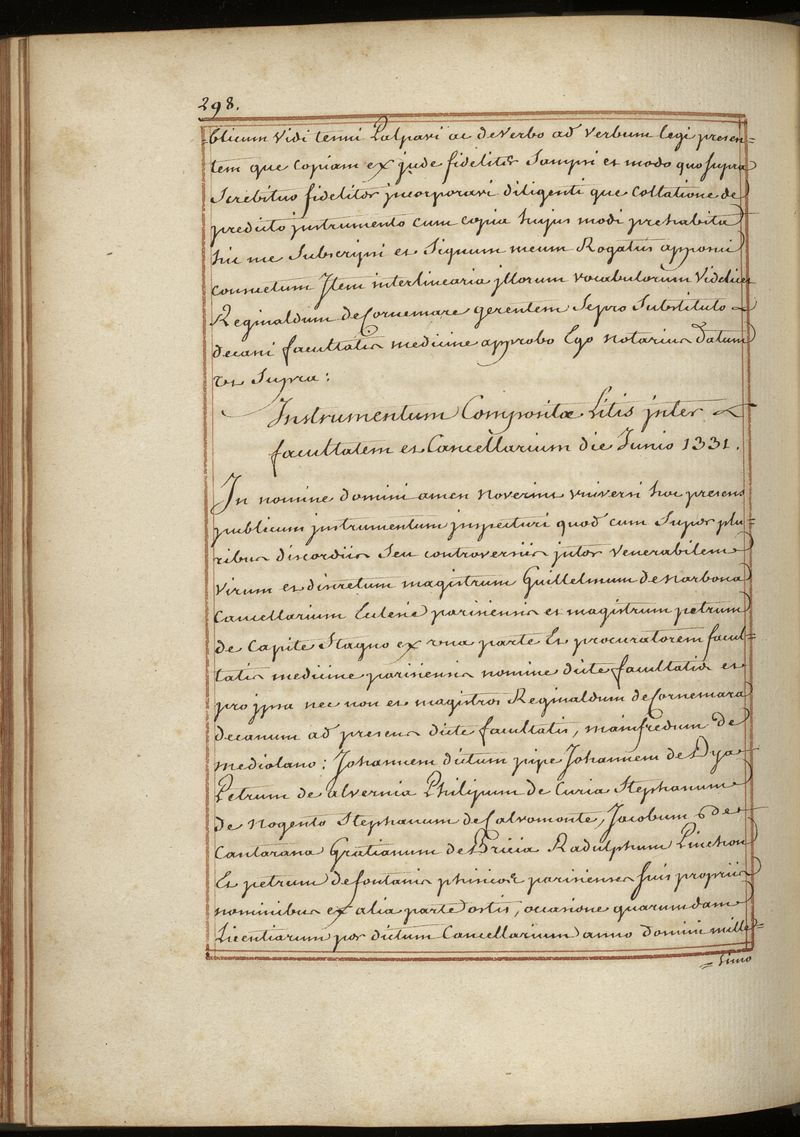 298.
=blicum vidi tenui Palpavi ac de verbo ad verbum legi presen=
tem que copiam ex jnde fideliter Sompsi et modo quo supra
Screbituo fideliter jncorporavi diligenti que Collatione de
predicto jnstrumento cum copia hujus modi prehabita
hic me Subscripsi et Signum meum Rogatus apposui
consuetum Jtem interlinearia jllorum vocabulorum Videlicet
Reginaldum de Cornemare gerentem Sepro Substituto
decani facultatis medicine approbo Ego notarius datum
vt Supra :
Instrumentum Compositæ Litis jnter
facultatem et Cancellarium die Junio 1331.
Jn nomine domini amen Noverint vniversi hoc presens
publicum jnstrumentum jnspecturi quod cum Super plu=
ribus discordiis Seu controversiis jnter venerabilem
virum et discretum magistrum Guillelmum de Narbona
Cancellarium Eclesie parisiensis et magistrum petrum
de Capite Stagno ex vna parte Et procuratorem facul=
tatis medicine parisiensis nomine dicte facultatis et
pro jpsa nec non et magistros Reginaldum de Cornemara
decanum ad presens dicte facultatis, mainfredum de
mediolano : Johannem dictum pipe Johannem de Dya
Petrum de alvernia Philipum de Curia Stephanum
de Nogento Stephanum de Calvomonte, Jacobum de
Cantarana Gratianum de Bricia Radulphum Pinchon
Et petrum de fontanis phisicos parisienses suis propriis
nominibus ex alia parte ortis, occasione quarumdam
Licentiarum per dictum Cancellarium anno domini mille=
=simo